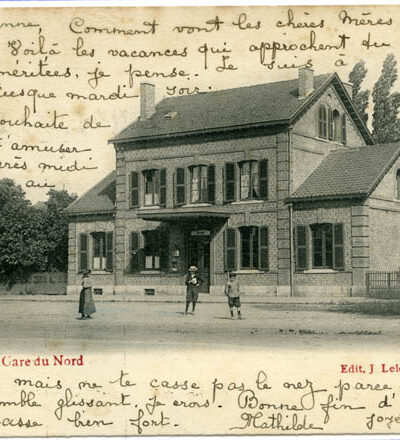 nne, Comment vont les chères Mères
Voilà les vacances qui approchent du
méritées, je pense. Je suis à
usque mardi soir.
ouhaite de
t amuser
rès midi
au
Gare du Nord
Edit, J Lel
mais ne te casse pas le nez parce
mble glissant, je crois. Bonne fin d'
asse bien fort. Mathilde Joye